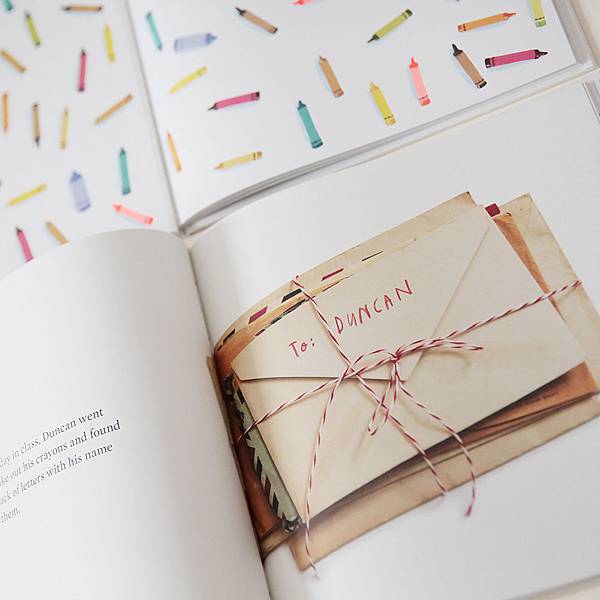 day in class, Duncan went
ke out his crayons and found
ack of letters with his name
them.
To: DUNCAN